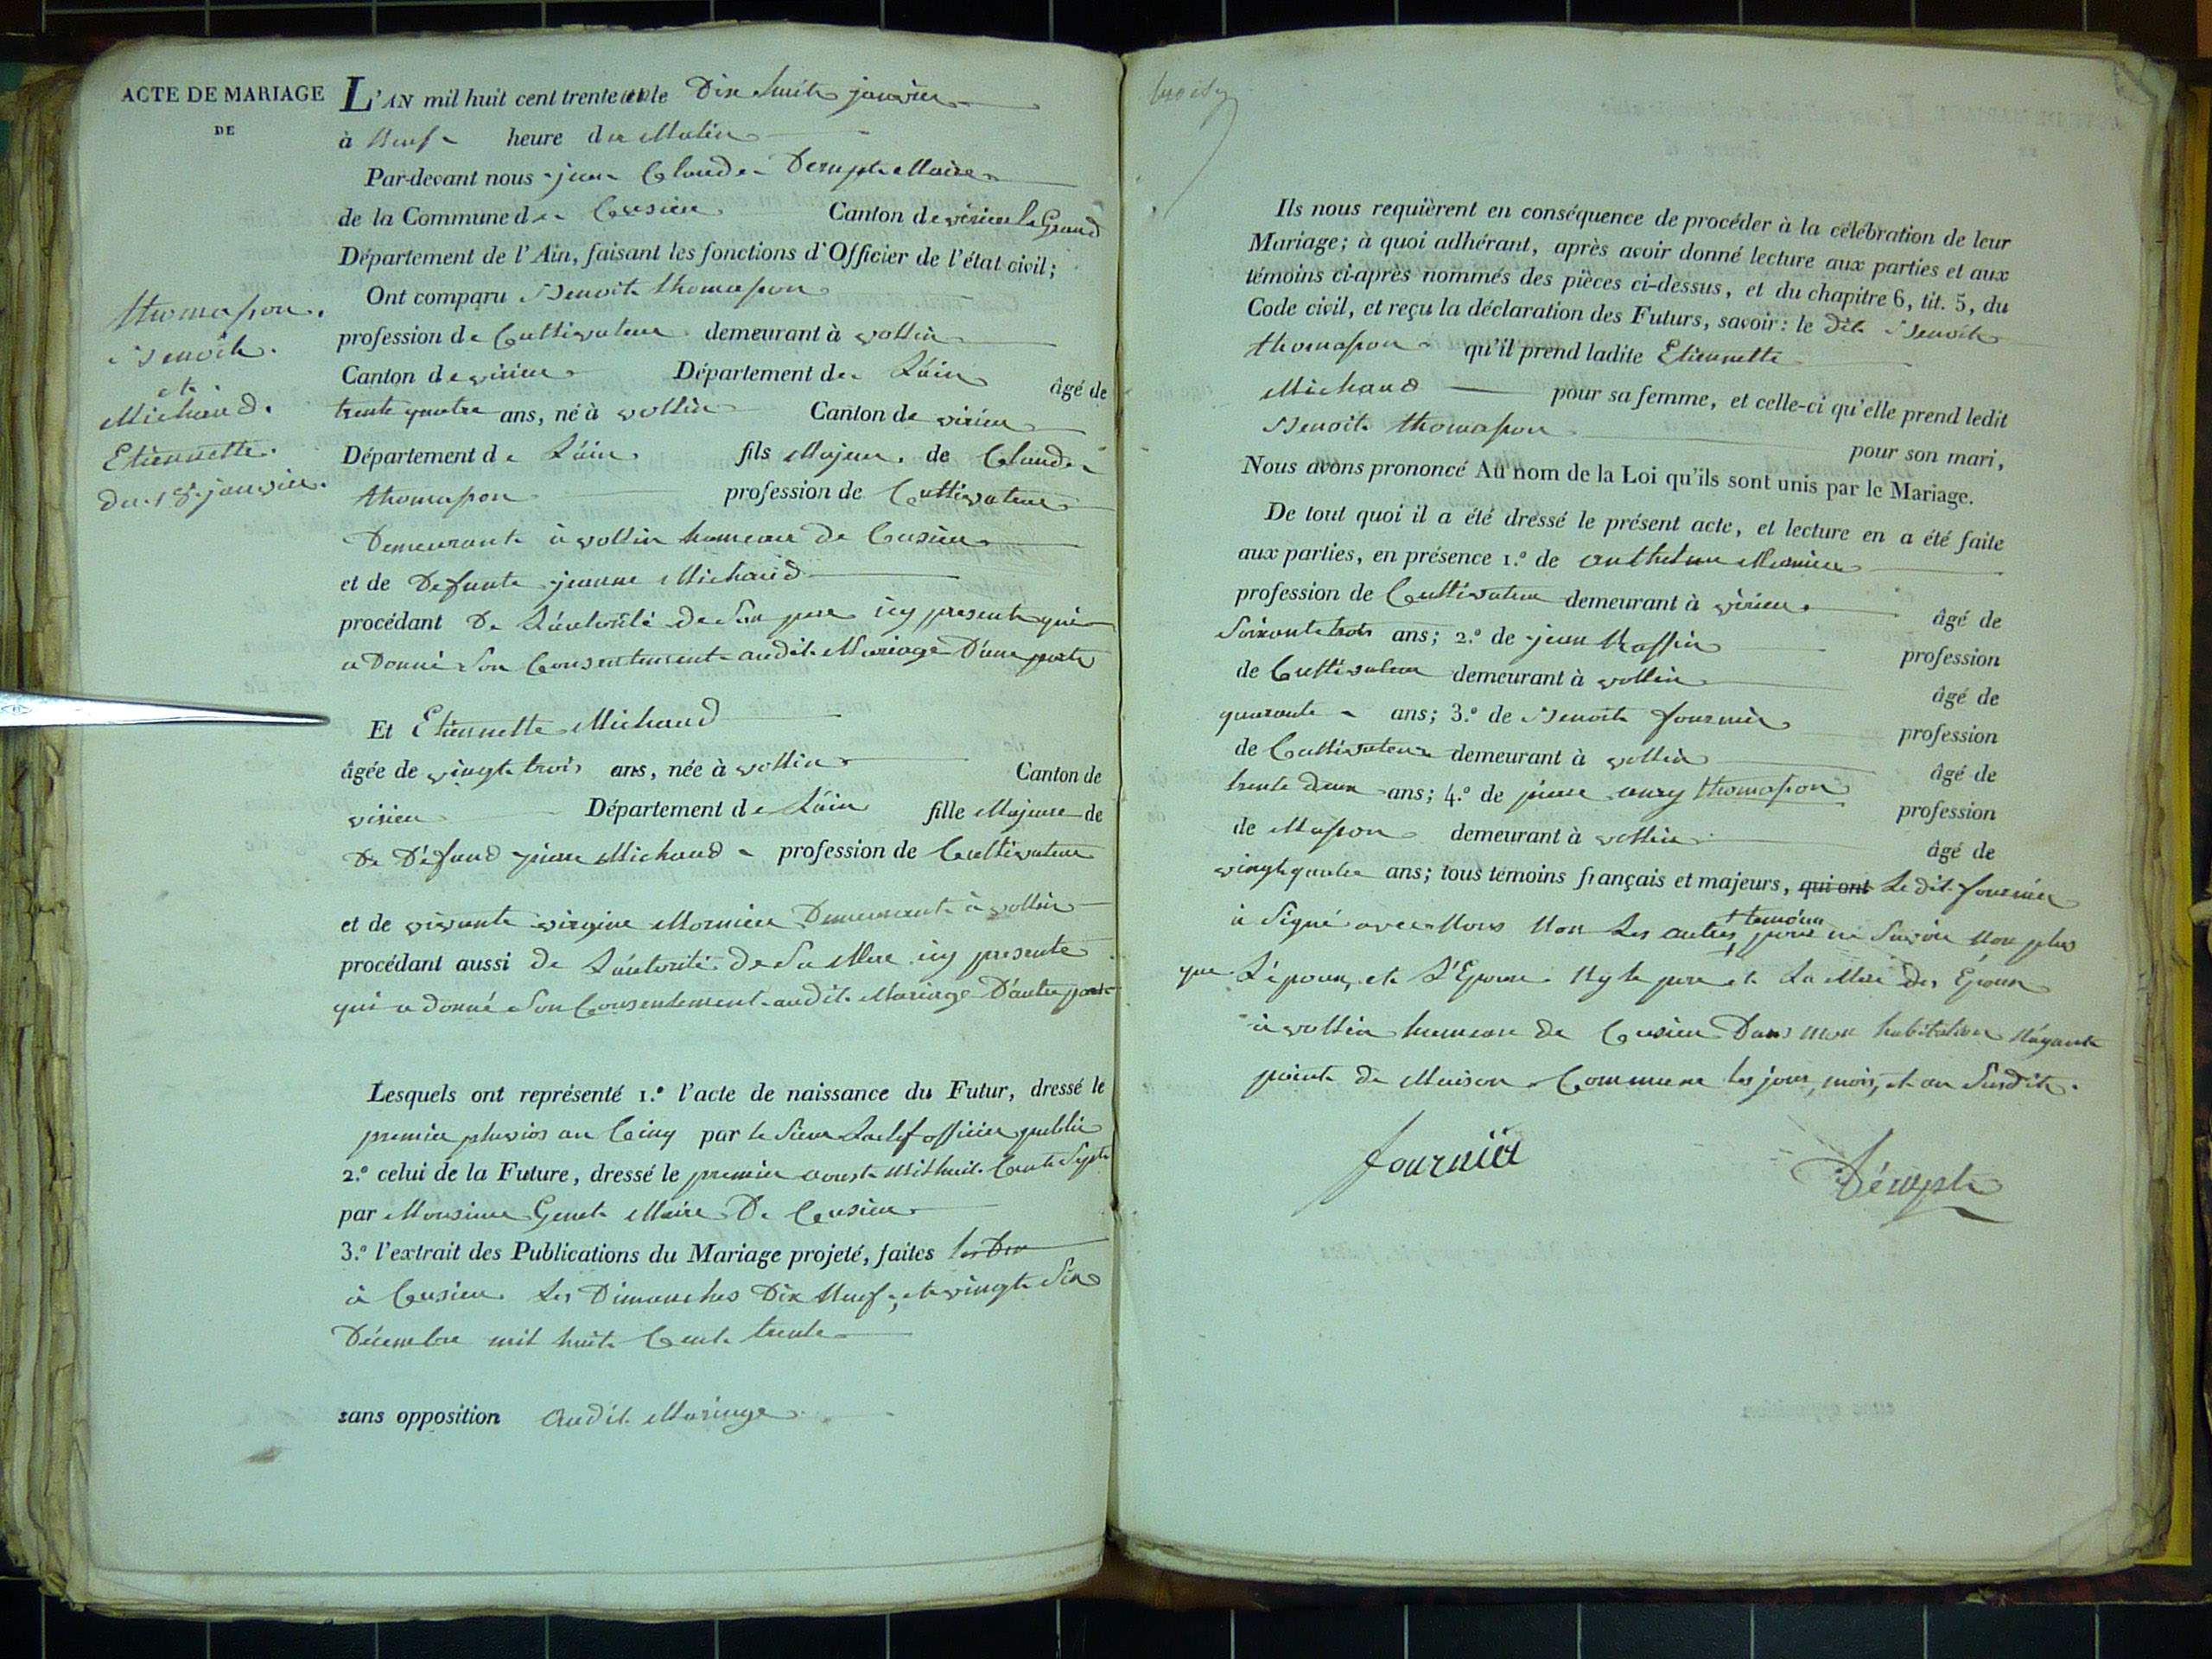 ACTE DE MARIAGE
DE
thomasson.
Benoit.
et
Michaud.
Etiennette.
du 18 janvier.
L'AN mil huit cent trente et un le Dix huit janvier
à Neuf heure du Matin
Par-devant nous jean Claude Dempt Maire
de la Commune de Cusieu Canton de virieu le Grand
Département de l'Ain, faisant les fonctions d'Officier de l'état civil;
Ont comparu Benoit thomasson
profession de Cultivateur demeurant à vollin
Canton de virieu Département de L'áin âgé de
trente quatre ans, né à vollin Canton de virieu
Département de L'áin fils Majeur de Claude
thomasson profession de Cultivateur
Demeurant à vollin hameau de Cusieu
et de Defunte jeanne Michaud
procédant De L'autorité de Son pere icy present qui
a Donné Son Consentement audit Mariage D'une part
Et Etiennette Michaud
âgée de vingt trois ans, née à vollin Canton de
virieu Département de L'áin fille Majeure de
De Défund pierre Michaud profession de Cultivateur
et de vivante virgine Mornieu Demeurant à vollin
procédant aussi de L'autorité de Sa Mere icy presente
qui a donné Son Consentement audit Mariage D'autre part
Lesquels ont représenté 1.º l'acte de naissance du Futur, dressé le
premier pluvios an Cinq par le Sieur officier public
2.º celui de la Future, dressé le premier aoust Mil huit Cent Sept
par Monsieur Genet Maire De Cusieu
3.º l'extrait des Publications du Mariage projeté, faites les Dix
à Cusieu Les Dimanches Dix Neuf, et vingt Six
Décembre mil huit Cent trente
sans opposition audit Mariage
Ils nous requièrent en conséquence de procéder à la célébration de leur
Mariage; à quoi adhérant, après avoir donné lecture aux parties et aux
témoins ci-après nommés des pièces ci-dessus, et du chapitre 6, tit. 5, du
Code civil, et reçu la déclaration des Futurs, savoir: le dit Benoit
thomasson qu'il prend ladite Etiennette
Michaud pour sa femme, et celle-ci qu'elle prend ledit
Benoit thomasson pour son mari,
Nous avons prononcé Au nom de la Loi qu'ils sont unis par le Mariage.
De tout quoi il a été dressé le présent acte, et lecture en a été faite
aux parties, en présence 1.º de anthelme Mornieu
profession de Cultivateur demeurant à virieu âgé de
Soixante trois ans; 2.º de jean profession
de Cultivateur demeurant à vollin âgé de
quarante ans; 3.º de Benoit fournier profession
de Cultivateur demeurant à vollin âgé de
trente deux ans; 4.º de pierre thomasson profession
de Masson demeurant à vollin âgé de
vingt quatre ans; tous témoins français et majeurs, qui ont Le dit fournier
à Signé avec Nous Non Les autres témoins pour ne Savoir Non plus
que L'époux, et L'Epouse Ny le pere et La Mere des Époux
à vollin hameau de Cusieu Dans mon habitation N'ayant
point de Maison Commune les jour, mois, et an Susdits.
fournier
Dempt